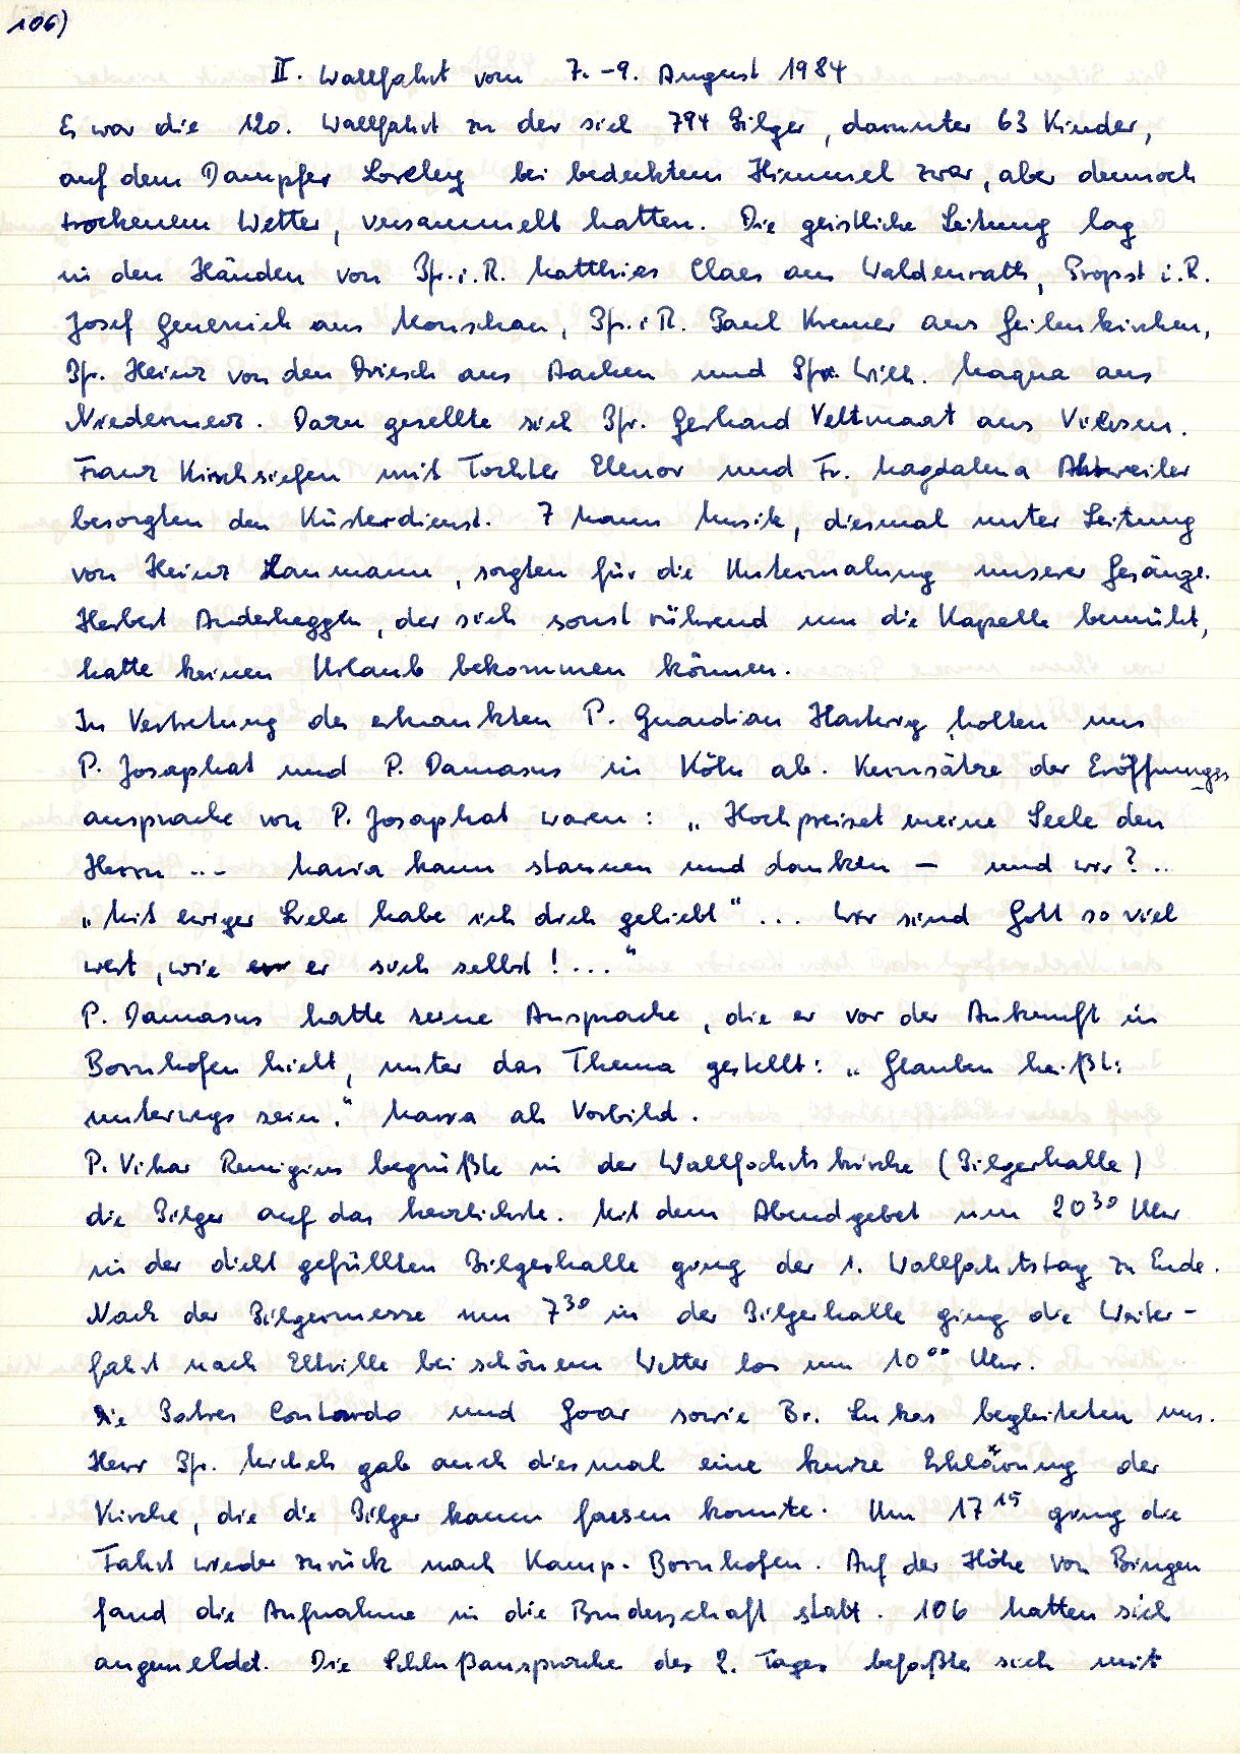 106)
II. Wallfahrt vom 7.-9. August 1984
Es war die 120. Wallfahrt zu der sich 794 Pilger, darunter 63 Kinder,
auf dem Dampfer Loreley bei bedecktem Himmel zwar, aber dennoch
trockenem Wetter, versammelt hatten. Die geistliche Leitung lag
in den Händen von Pfr. i. R. Matthias Claes aus Waldenrath, Propst i. R.
Josef Genereich aus Monschau, Pfr. i R. Paul Kremer aus Geilenkirchen,
Pfr. Heinz von den Driesch aus Aachen und Pfr. Wilh. Maqua aus
Niedermerz. Dazu gesellte sich Pfr. Gerhard Veltmaat aus Viersen.
Franz Kirschsiefen mit Tochter Elenor und Fr. Magdalena Ahrweiler
besorgten den Küsterdienst. 7 Mann Musik, diesmal unter Leitung
von Heinz Lanmann, sorgten für die Untermalung unserer Gesänge.
Herbert Anderheggen, der sich sonst rührend um die Kapelle bemüht,
hatte keinen Urlaub bekommen können.
In Vertretung des erkrankten P. Guardian Hartwig holten uns
P. Josaphat und P. Damasus in Köln ab. Kernsätze der Eröffnungs
ansprache von P. Josaphat waren: „Hochpreiset meine Seele den
Herrn ... Maria kann staunen und danken – und wir? ..
„Mit ewiger Liebe habe ich dich geliebt" ... Wir sind Gott so viel
wert, wie er sich selbst! ..."
P. Damasus hatte seine Ansprache, die er vor der Ankunft in
Bornhofen hielt, unter das Thema gestellt: „Glauben heißt:
unterwegs sein." Maria als Vorbild.
P. Vikar Remigius begrüßte in der Wallfahrtskirche (Pilgerhalle)
die Pilger auf das herzlichste. Mit dem Abendgebet um 20³⁰ Uhr
in der dicht gefüllten Pilgerhalle ging der 1. Wallfahrtstag zu Ende.
Nach der Pilgermesse um 7³⁰ in der Pilgerhalle ging die Weiter-
fahrt nach Eltville bei schönem Wetter los um 10⁰⁰ Uhr.
Die Patres Contardo und Goar sowie Br. Lukas begleiteten uns.
Herr Pfr. Michels gab auch diesmal eine kurze Erklärung der
Kirche, die die Pilger kaum fassen konnte. Um 17¹⁵ ging die
Fahrt wieder zurück nach Kamp-Bornhofen. Auf der Höhe von Bingen
fand die Aufnahme in die Bruderschaft statt. 106 hatten sich
angemeldet. Die Schlußansprache des 2. Tages befaßte sich mit